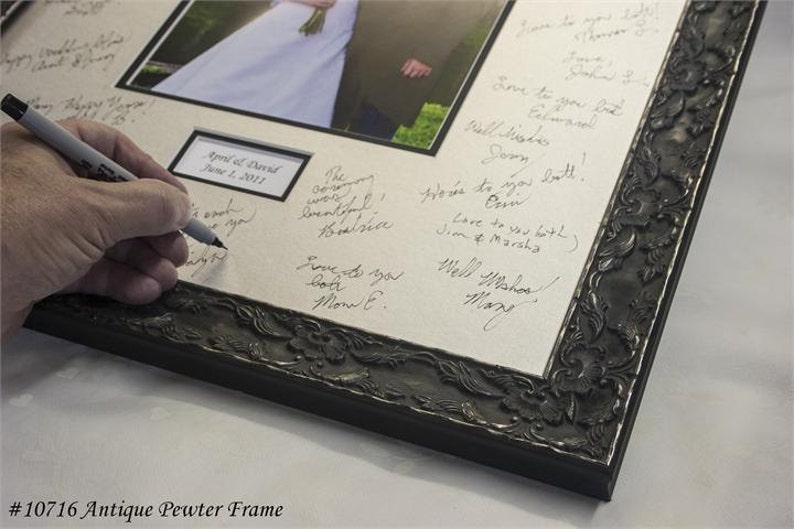 Love to you both!
Thomas S.
Love,
John S.
Love to you both
Edward
Well Wishes
Jenny
Here's to you both!
Erin
Love to you both,
Jim & Marsha
Well Wishes!
Mary
Happy Wedding
Aunt
Many Happy Years!
April & David
June 1, 2011
The
ceremony
was
beautiful!
Beatrice
each
you
Love to you
both
Mom E.
#10716 Antique Pewter Frame